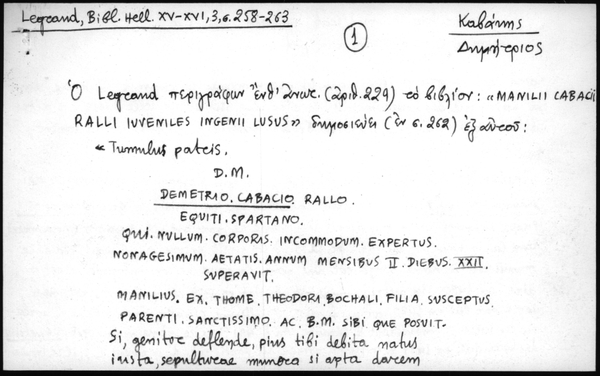 Legrand, Bibl. Hell. XV-XVI, 3, σ. 258-263
Καβάκης
Δημήτριος
1
Ὁ Legrand περιγράφων ἔνθ' ἀνωτ. (ἀριθ. 229) τὸ βιβλίον: «MANILII CABACII
RALLI IUVENILES INGENII LUSUS» δημοσιεύει (ἐν σ. 262) ἐξ αὐτοῦ:
« Tumulus patris.
D. M.
DEMETRIO. CABACIO. RALLO.
EQUITI. SPARTANO.
QUI. NULLUM. CORPORIS. INCOMMODUM. EXPERTUS.
NONAGESIMUM. AETATIS. ANNUM MENSIBUS II. DIEBUS. XXII.
SUPERAVIT.
MANILIUS. EX. THOME. THEODORI. BOCHALI. FILIA. SUSCEPTUS.
PARENTI. SANCTISSIMO. AC. B. M. SIBI QUE POSUIT.
Si, genitor deflende, pius tibi debita natus
iusta, sepulturae munera si apta darem